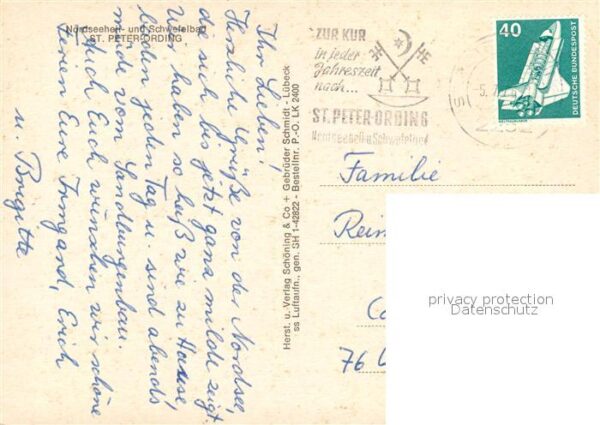 Nordseeheil- und Schwefelbad
ST. PETER-ORDING
Ihr Lieben!
Herzliche Grüße von der Nordsee,
die sich bis jetzt ganz milde zeigt.
Wir haben so heiß wie zu Hause,
baden jeden Tag u. sind abends
müde vom Sandburgenbau.
Auch Euch wünschen wir schöne
Ferien Eure Irmgard, Erich
u. Brigitte
Herst. u. Verlag Schöning & Co + Gebrüder Schmidt - Lübeck
ss Luftaufn., gen. SH 1-42822 - Bestellnr. P.-O. LK 2400
ZUR KUR
in jeder
Jahreszeit
nach...
ST. PETER-ORDING
Nordseeheil u Schwefelbad
40
DEUTSCHE BUNDESPOST
Familie
Reim
76
privacy protection
Datenschutz